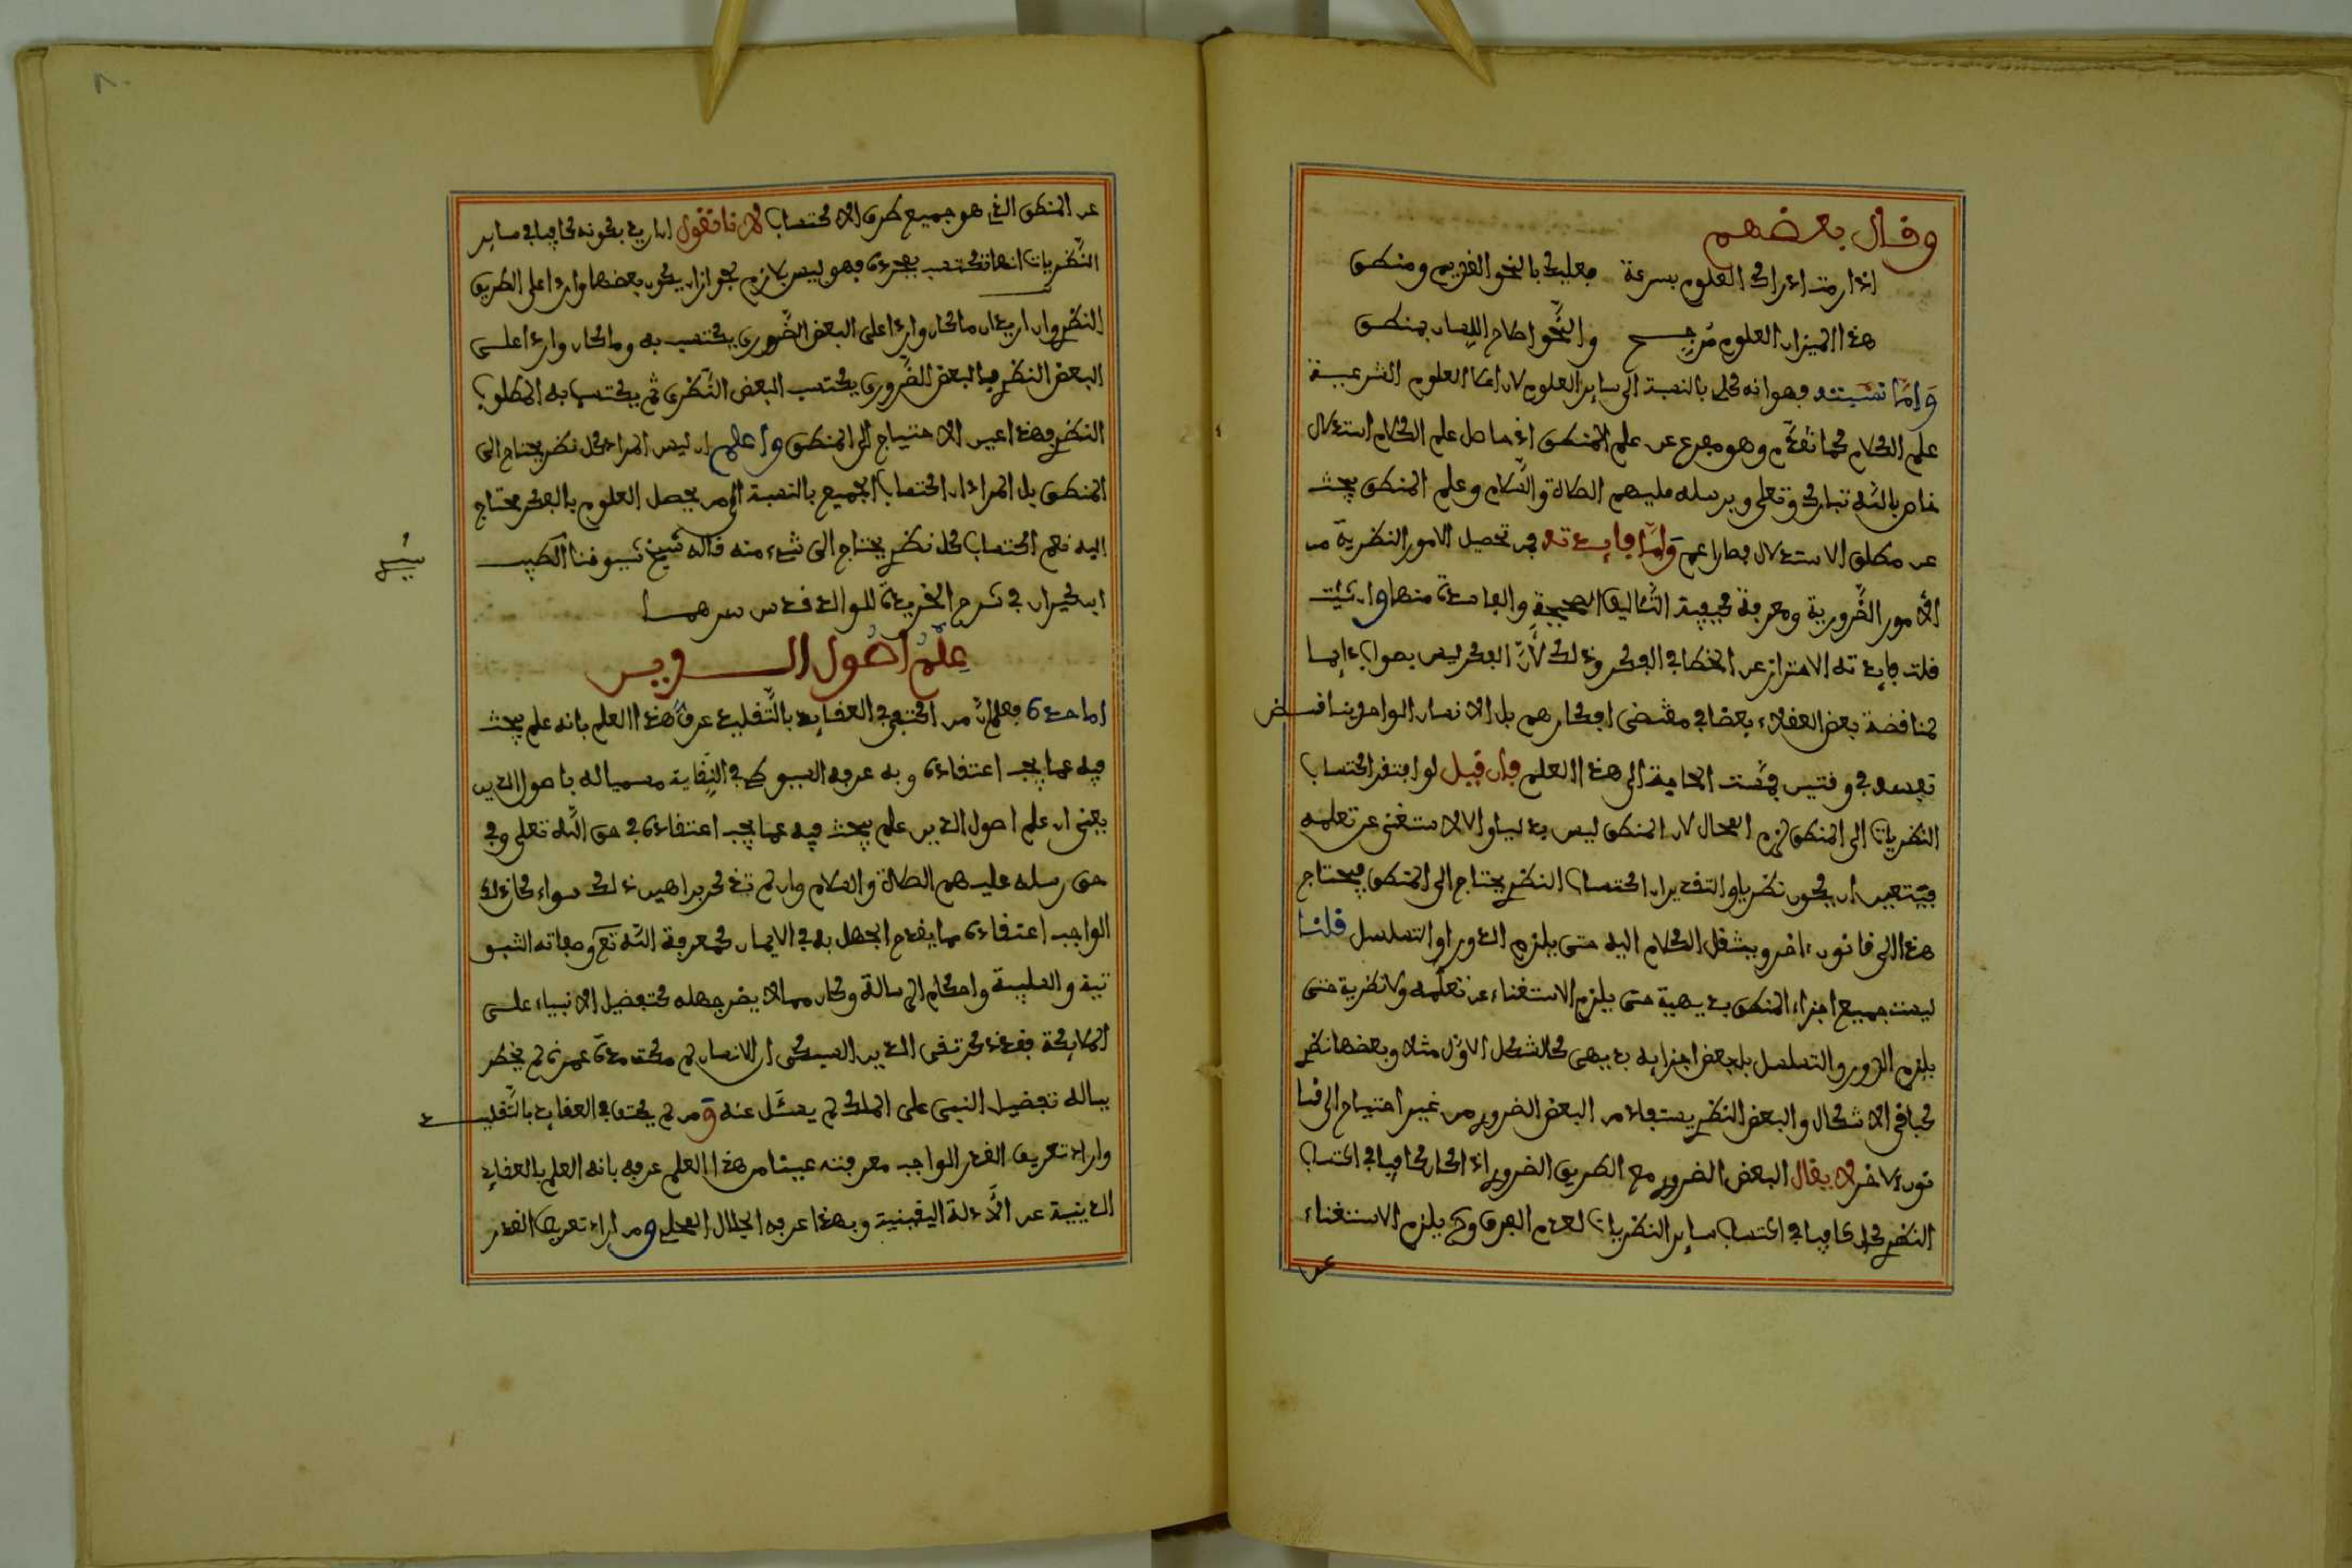 وقال بعضهم
اذا رمت ادراك العلوم بسرعة فعليك بالنحو القويم ومنطق
هذا الميزان العلوم مرجح والنحو اصلاح اللسان بمنطق
وَاَمَّا نسبته فهو انه كلى بالنسبة الى ساير العلوم لان اعلا العلوم الشرعية
علم الكلام كما تقدّم وهو مفرع عن علم المنطق اذ حاصل علم الكلام استدلال
خاص بالله تبارك وتعلى وبرسله عليهم الصلاة والسّلام وعلم المنطق يبحث
عن مطلق الاستدلال فصار اعم وَاَمَّا فايدته فهى تحصيل الامور النظرية من
الأمور الضّرورية ومعرفة كيفية التّئاليف الصحيحة والفاسدة منها وان شئت
قلت فايدته الاحتراز عن الخطا فى الفكر وذلك لأنّ الفكر ليس بصواب دايما
لمناقضة بعض العقلاء بعضا فى مقتضى افكارهم بل الانسان الواحد يناقض
نفسه فى وقتين فمست الحاجة الى هذا العلم فإن قيل لو افتقر اكتساب
النظريات الى المنطق لزم المحال لان المنطق ليس بديهيا والا لاستغنى عن تعلمه
فيتعين ان يكون نظريا والتقدير ان اكتساب النظرى يحتاج الى المنطق فيحتاج
هذا الى قانون ءاخر وينتقل الكلام اليه حتى يلزم الدور او التسلسل قلنا
ليست جميع اجزاء المنطق بديهية حتى يلزم الاستغناء عن تعلّمه ولا نظرية حتى
يلزم الدور والتسلسل بل بعض اجزايه بديهى كالشكل الاوّل مثلا وبعضها نظرى
كباقى الاشكال والبعض النظرى يستفاد من البعض الضرورى من غير احتياج الى قا
نون ءاخر لا يقال البعض الضرورى مع الطريق الضرورى اذا كان كافيا فى اكتساب
النظرى كان كافيا فى اكتساب ساير النظريات لعدم الفرق وح يلزم الاستغناء
عن
عن المنطق الذى هو جميع طرق الاكتساب لانا نقول ان اريد بكونه كافيا فى ساير
النّظريات انها تكتسب بمجرده فهو ليس بلازم لجواز ان يكون بعضها واردا على الطريق
النظرى وان اريد ان ما كان واردا على البعض الضّرورى يكتسب به وما كان واردا على
البعض النظرى فبالبعض الضّرورى يكتسب البعض النّظرى ثم يكتسب به المطلوب
النظرى وهذا عين الاحتياج الى المنطق واعلم ان ليس المراد كل نظرى يحتاج الى
المنطق بل المراد ان اكتساب الجميع بالنسبة الى من يحصل العلوم بالفكر محتاج
اليه نعم اكتساب كل نظرى يحتاج الى شىء منه قاله شيخ شيوخنا الطيب
ابن كيران فى شرح الخريدة للوالد قدس سرهما
عِلْمُ اُصُول الدين
اما حده فعلم انّ من اكتفى فى العقايد بالتّقليد عرف هذا العلم بانه علم يبحث
فيه عما يجب اعتقاده وبه عرفه السيوطى فى النقاية مسميا له باصول الدين
يعنى ان علم اصول الدين علم يبحث فيه عما يجب اعتقاده فى حق اللّه تعلى وفى
حق رسله عليهم الصلاة والسلام وان لم تذكر براهين ذلك سواء كان ذلك
الواجب اعتقاده مما يقدح الجهل به فى الايمان كمعرفة اللّه تع وصفاته الثبو
تية والسلبية واحكام الرسالة وكان مما لا يضر جهله كتفضيل الانبياء على
الملايكة فقد ذكر تقى الدين السبكى ان الانسان لو مكث مدّة عمره لم يخطر
بباله تفضيل النبى على الملك لم يسئل عنه ومن لم يكتف فى العقايد بالتّقليد
واراد تعريف القدر الواجب معرفته عينا من هذا العلم عرفه بانه العلم بالعقايد
الدينية عن الأدلة اليقينية وبهذا عرفه الجلال المحلى ومن اراد تعريف القدر